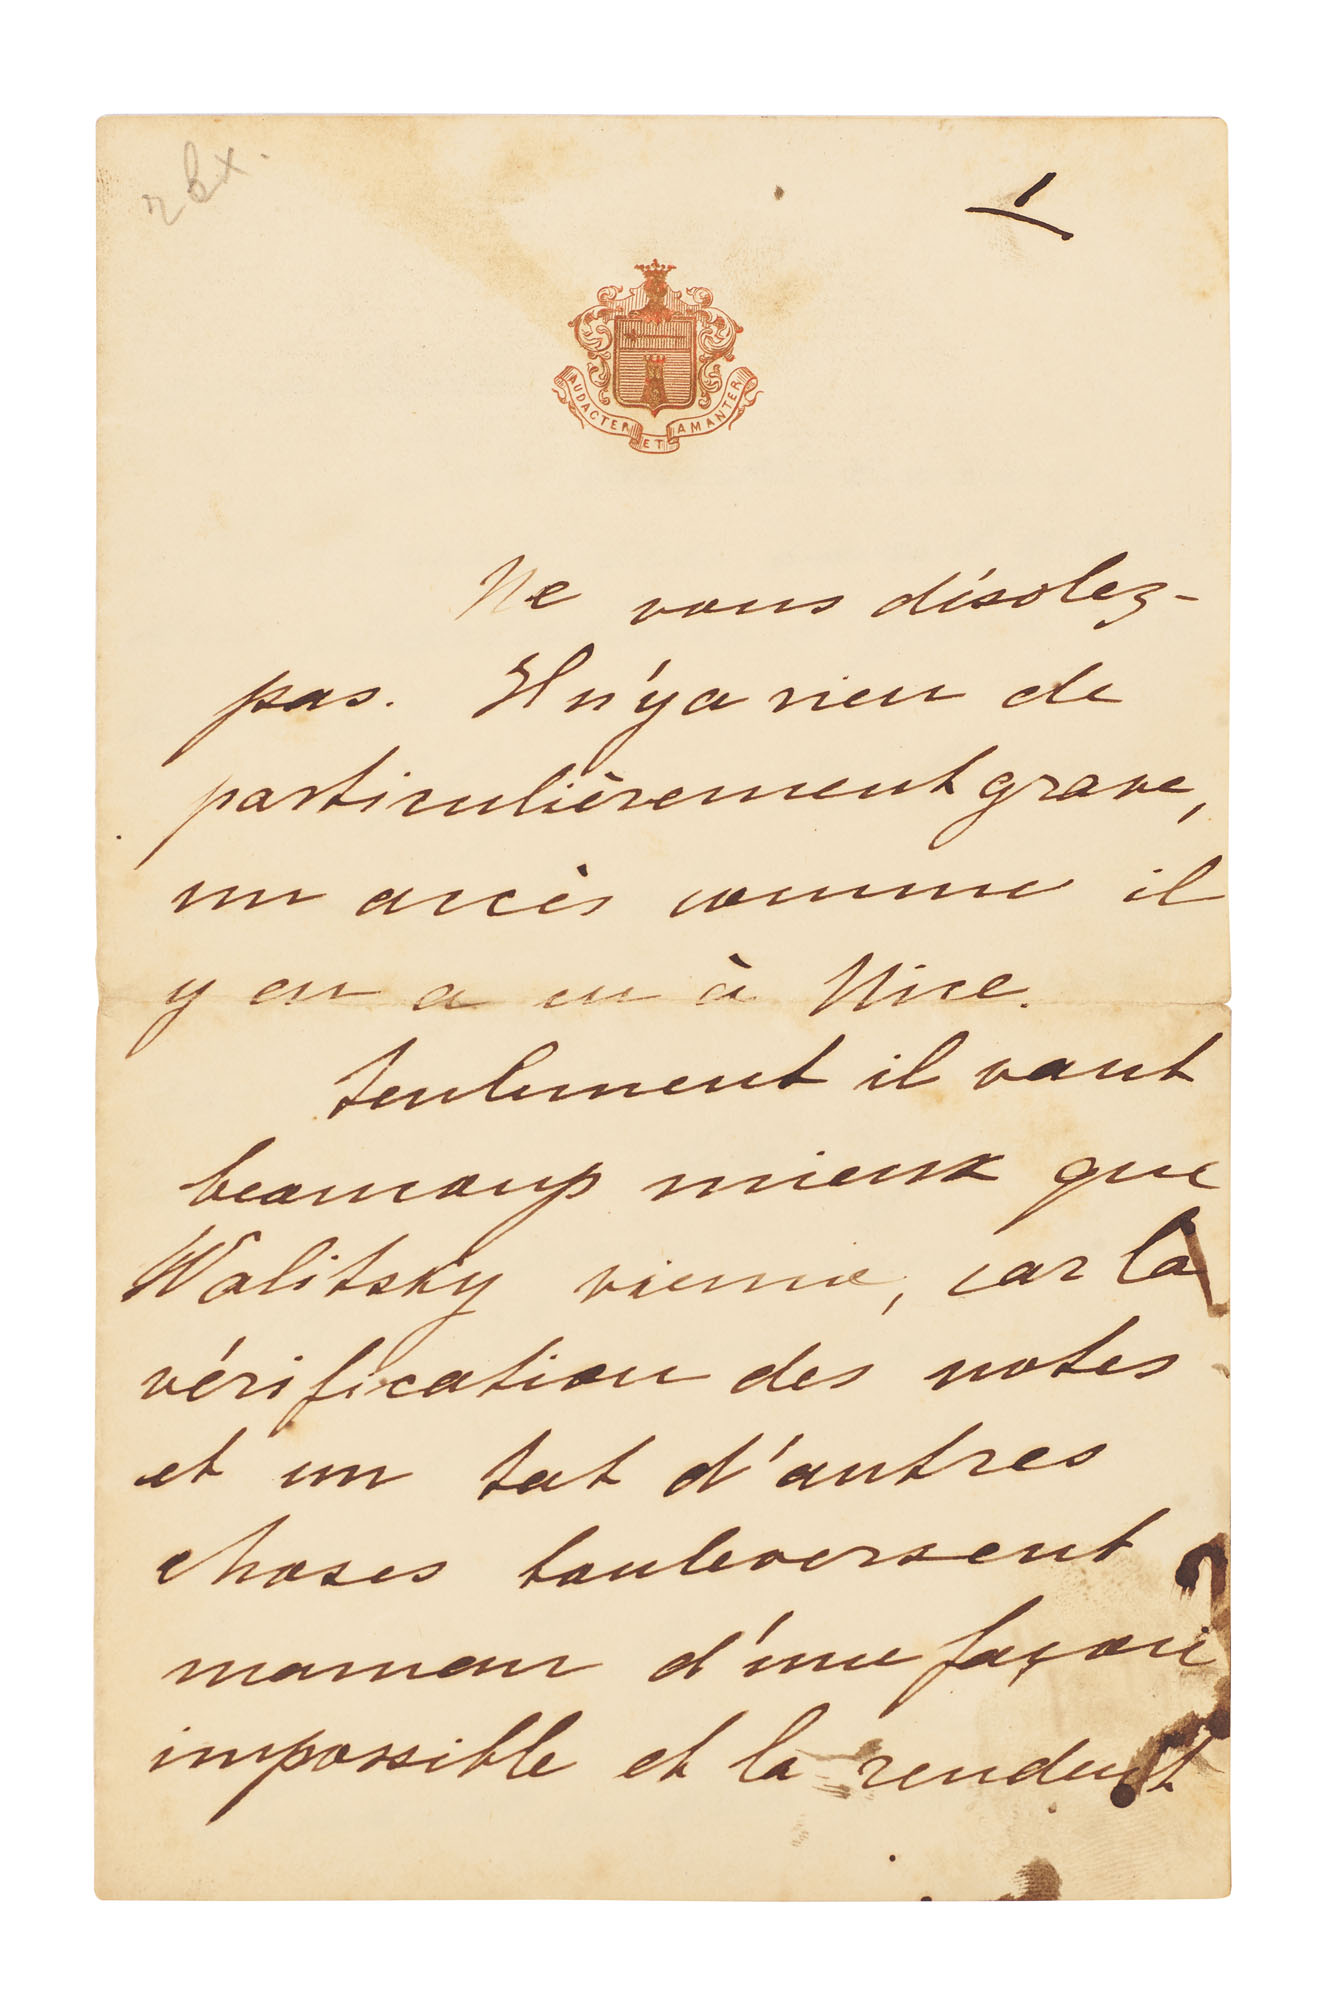 1
AUDACTER ET AMANTER
Ne vous désolez-
pas. Il n'y a rien de
particulièrement grave,
un accès comme il
y en a eu à Nice.
Seulement il vaut
beaucoup mieux que
Walitsky vienne, car la
vérification des notes
et un tat d'autres
choses bouleversent
maman d'une façon
impossible et la rendent